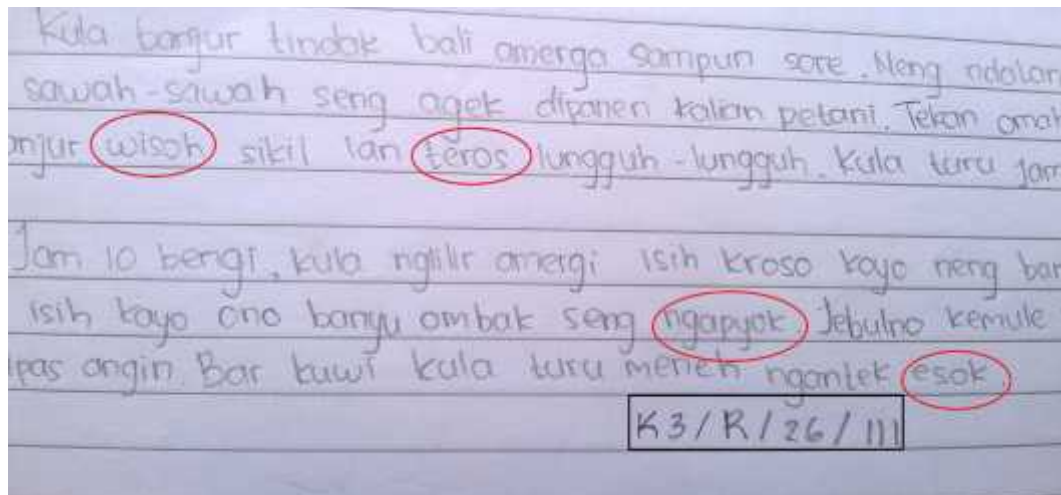 Kula banjur tindak bali amerga sampun sore. Neng ndalan
sawah-sawah seng agek dipanen kalian petani. Tekan omah
njur wisoh sikil lan teros lungguh-lungguh. Kula turu jam
Jam 10 bengi, kula nglilir amergi isih kroso koyo neng
isih koyo ono banyu ombak seng ngapyok Jebulno kemule
ipas angin. Bar kuwi kula turu meneh ngantek esok
K3/R/26/111